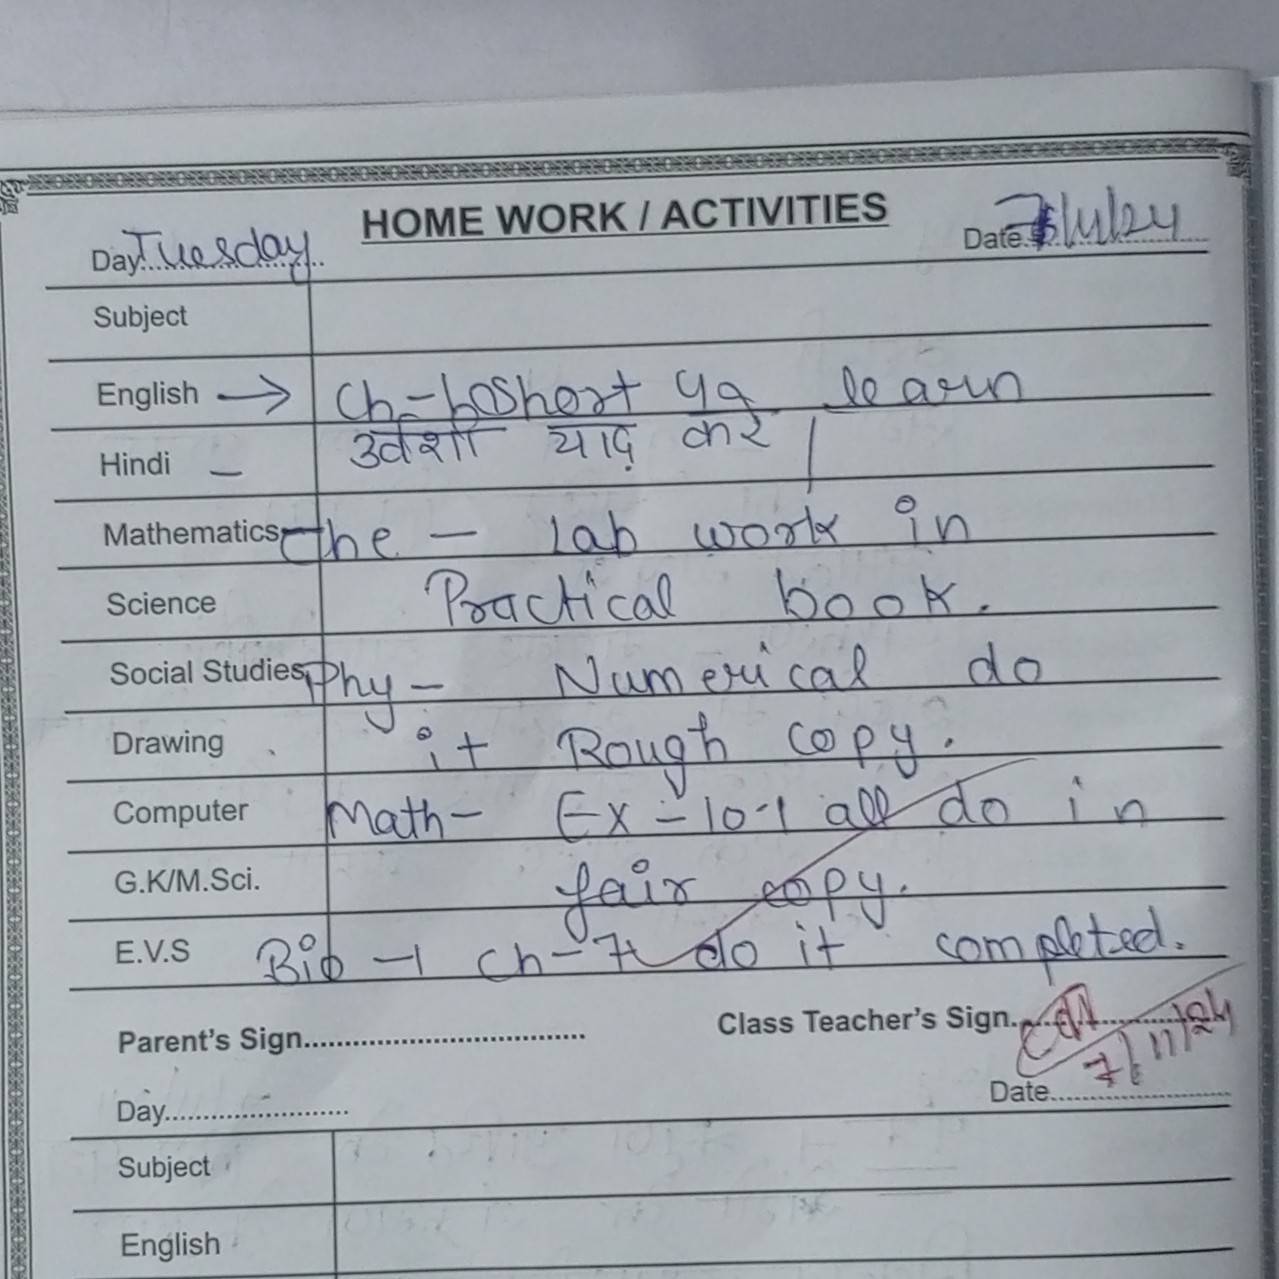 HOME WORK / ACTIVITIES
Day Tuesday Date 7/11/24
Subject
English → Ch-6 Short ya learn
Hindi — उर्वशी याद करे |
Mathematics Che - Lab work in
Science Practical book.
Social Studies Phy - Numerical do
Drawing it Rough copy.
Computer Math - Ex - 10.1 all do in
G.K/M.Sci. fair copy.
E.V.S Bio - 1 ch - 7 do it completed.
Parent's Sign............ Class Teacher's Sign............
7/11/24
Day............ Date............
Subject
English